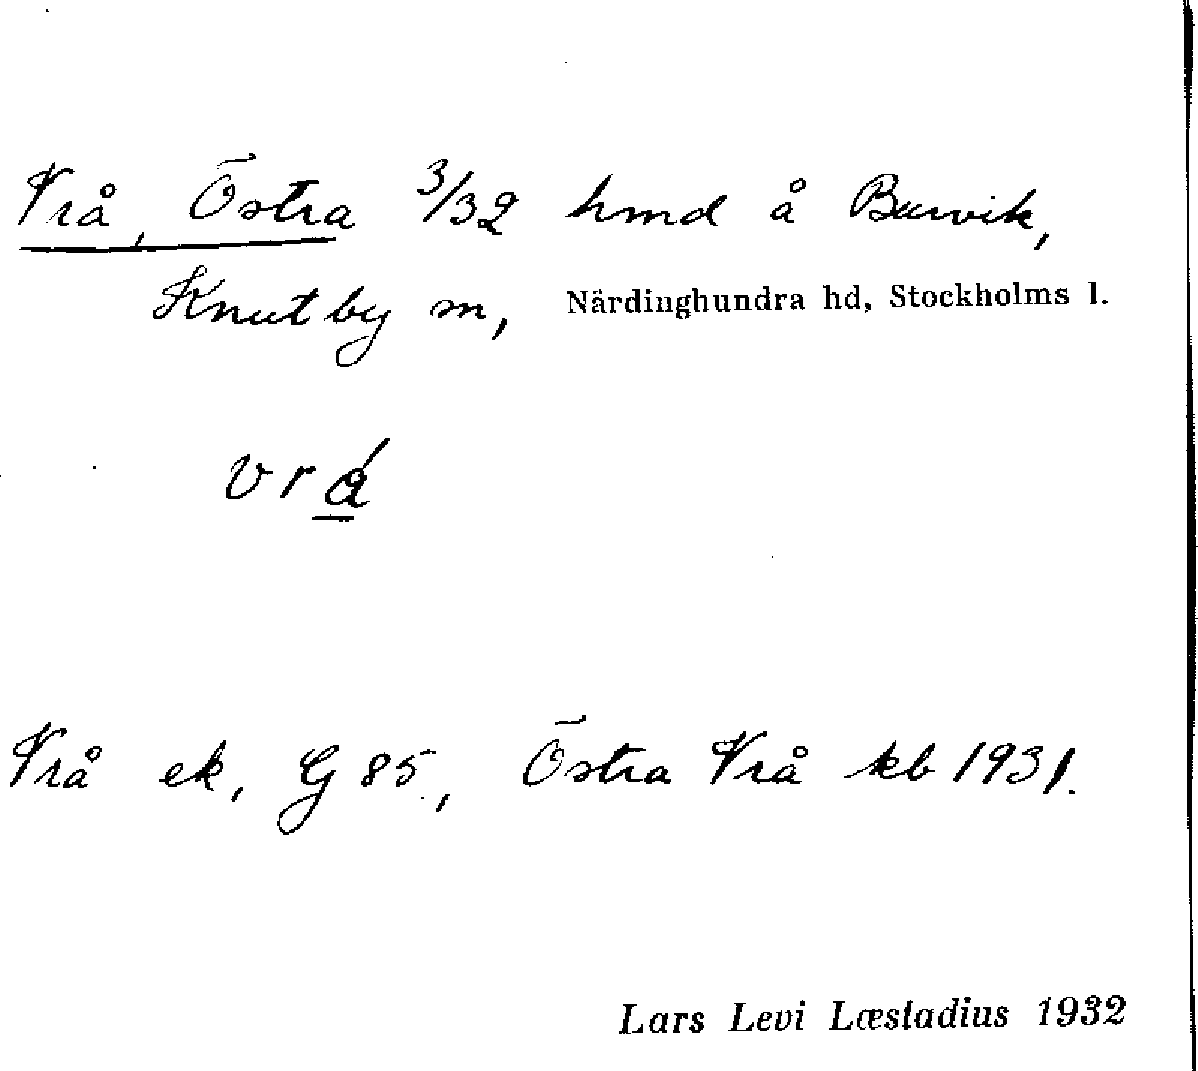 Vrå, Östra 3/32 hmd å Burvik,
Knutby sn, Närdinghundra hd, Stockholms l.
vrá
Vrå ek, G 85., Östra Vrå kb 1931.
Lars Levi Læstadius 1932